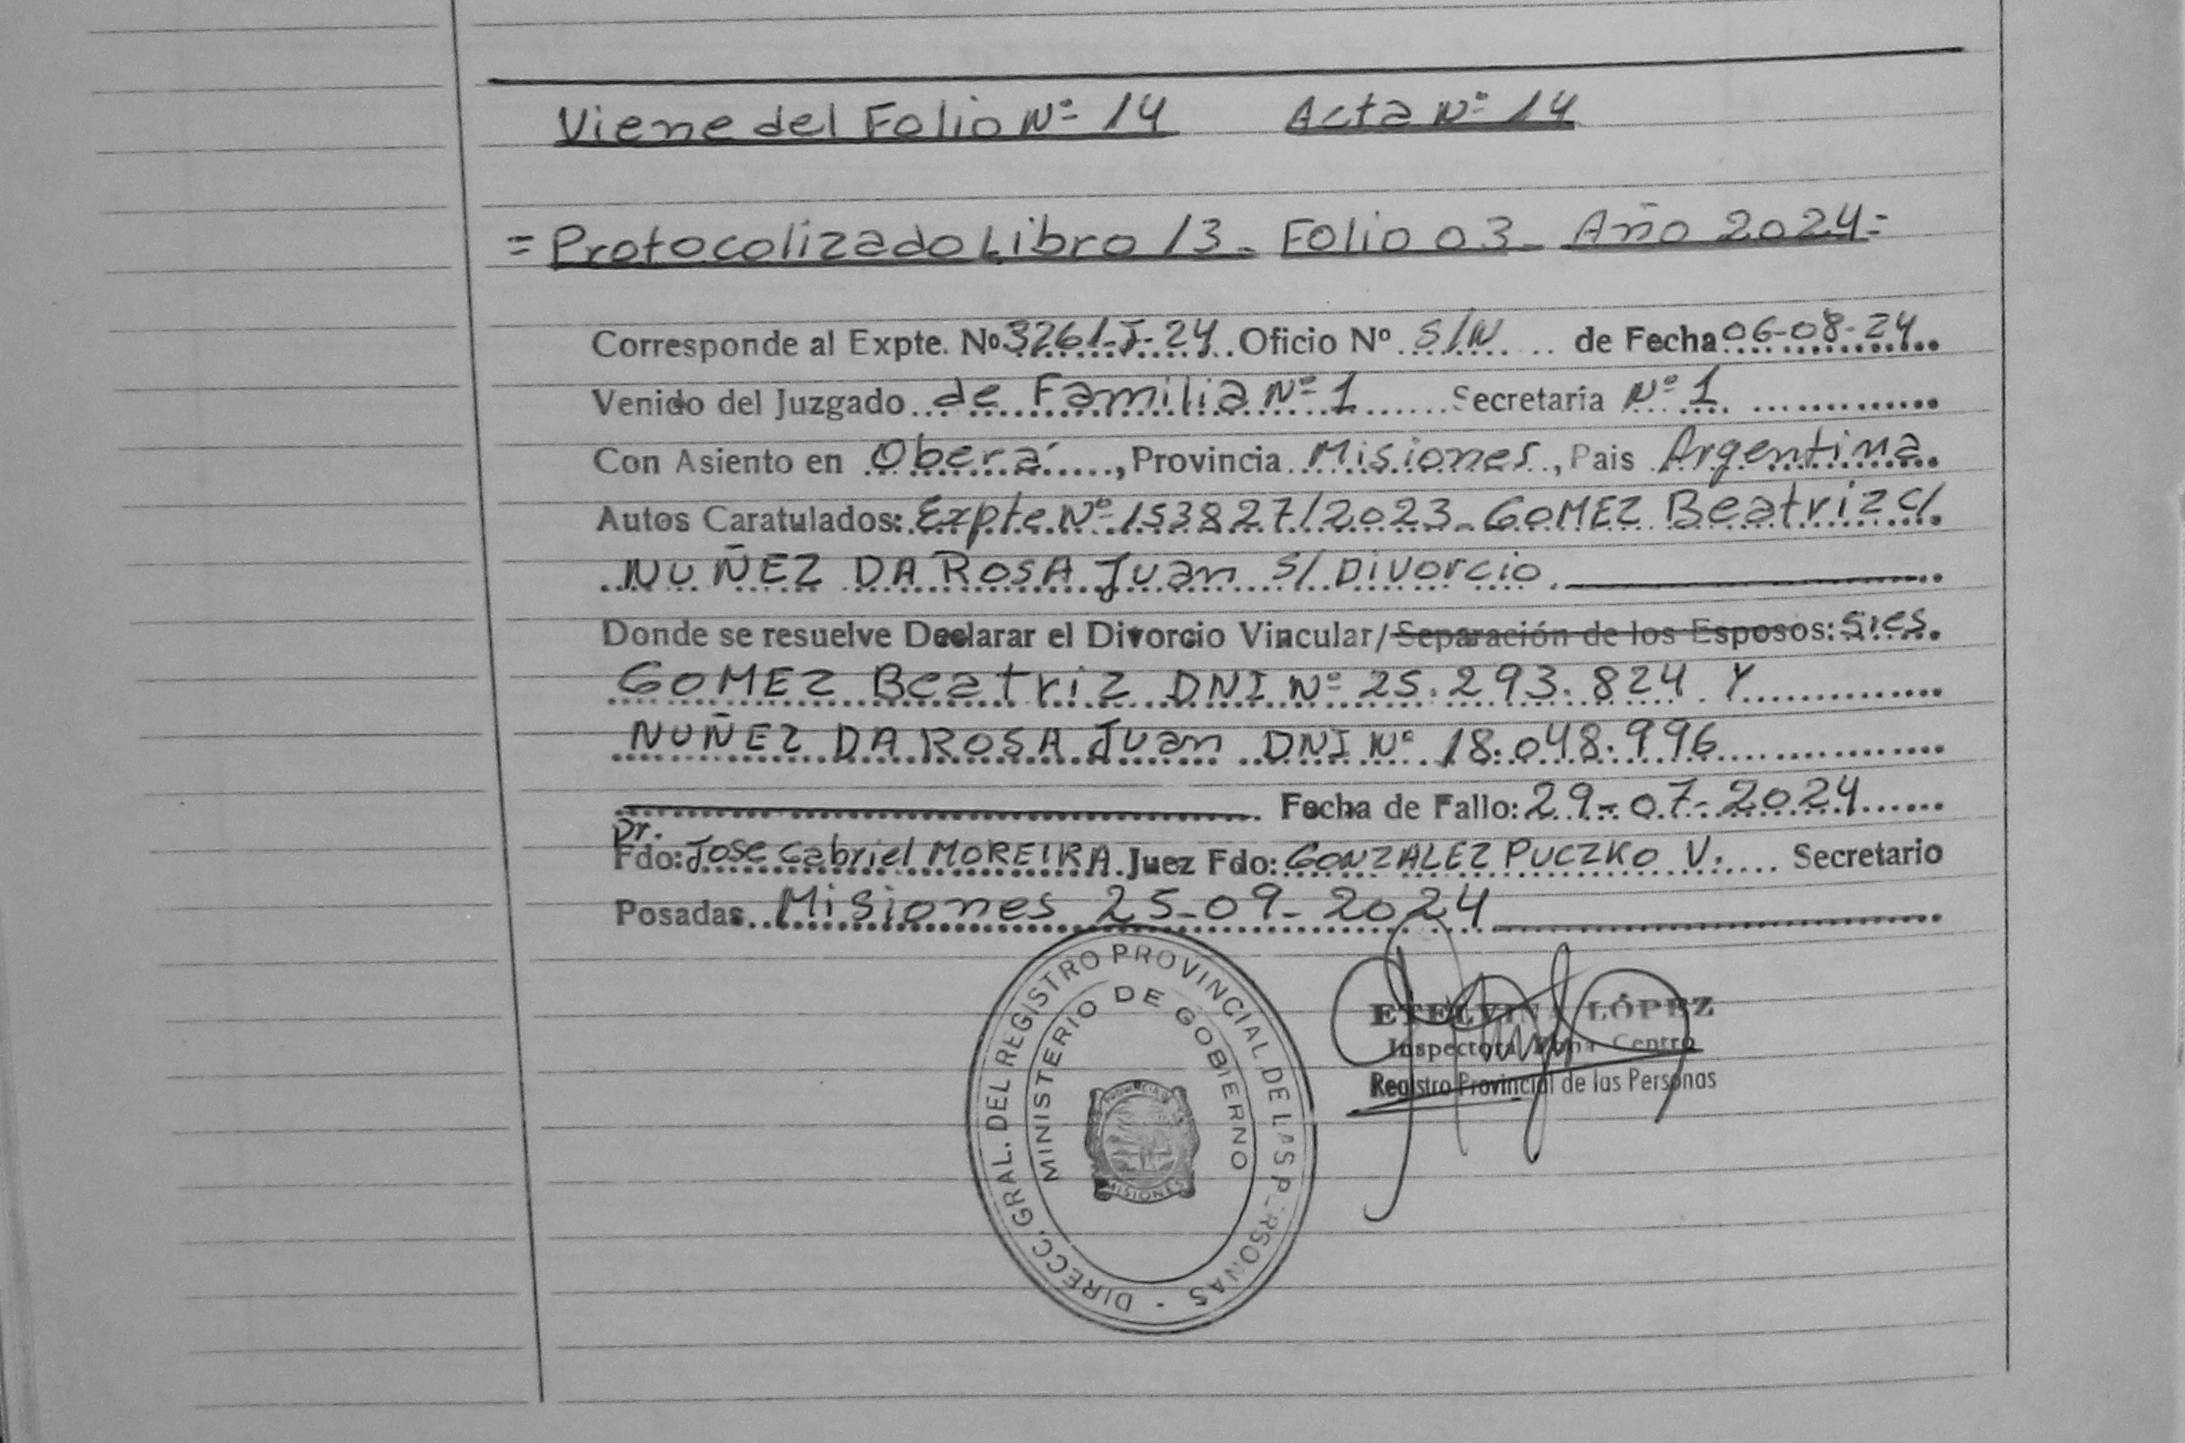 Viene del Folio Nº 14 Acta Nº 14
= Protocolizado Libro 13 - Folio 03 - Año 2024 =
Corresponde al Expte. Nº 3261-J-24 Oficio Nº S/N de Fecha 06-08-24
Venido del Juzgado de Familia Nº 1 Secretaría Nº 1
Con Asiento en Oberá, Provincia Misiones, Pais Argentina
Autos Caratulados: Expte Nº 153827/2023 - GOMEZ Beatriz C/
NUÑEZ DA ROSA Juan S/ Divorcio.
Donde se resuelve Declarar el Divorcio Vincular/Separación de los Esposos: S.res.
GOMEZ Beatriz DNI Nº 25.293.824 Y
NUÑEZ DA ROSA Juan DNI Nº 18.048.996
Fecha de Fallo: 29-07-2024
Dr.
Fdo: Jose Gabriel MOREIRA Juez Fdo: GONZALEZ PUCZKO V. Secretario
Posadas Misiones 25-09-2024
DIRECC. GRAL. DEL REGISTRO PROVINCIAL DE LAS PERSONAS -
MINISTERIO DE GOBIERNO
PROVINCIA DE
MISIONES
ETELVINA LÓPEZ
Inspectora Zona Centro
Registro Provincial de las Personas